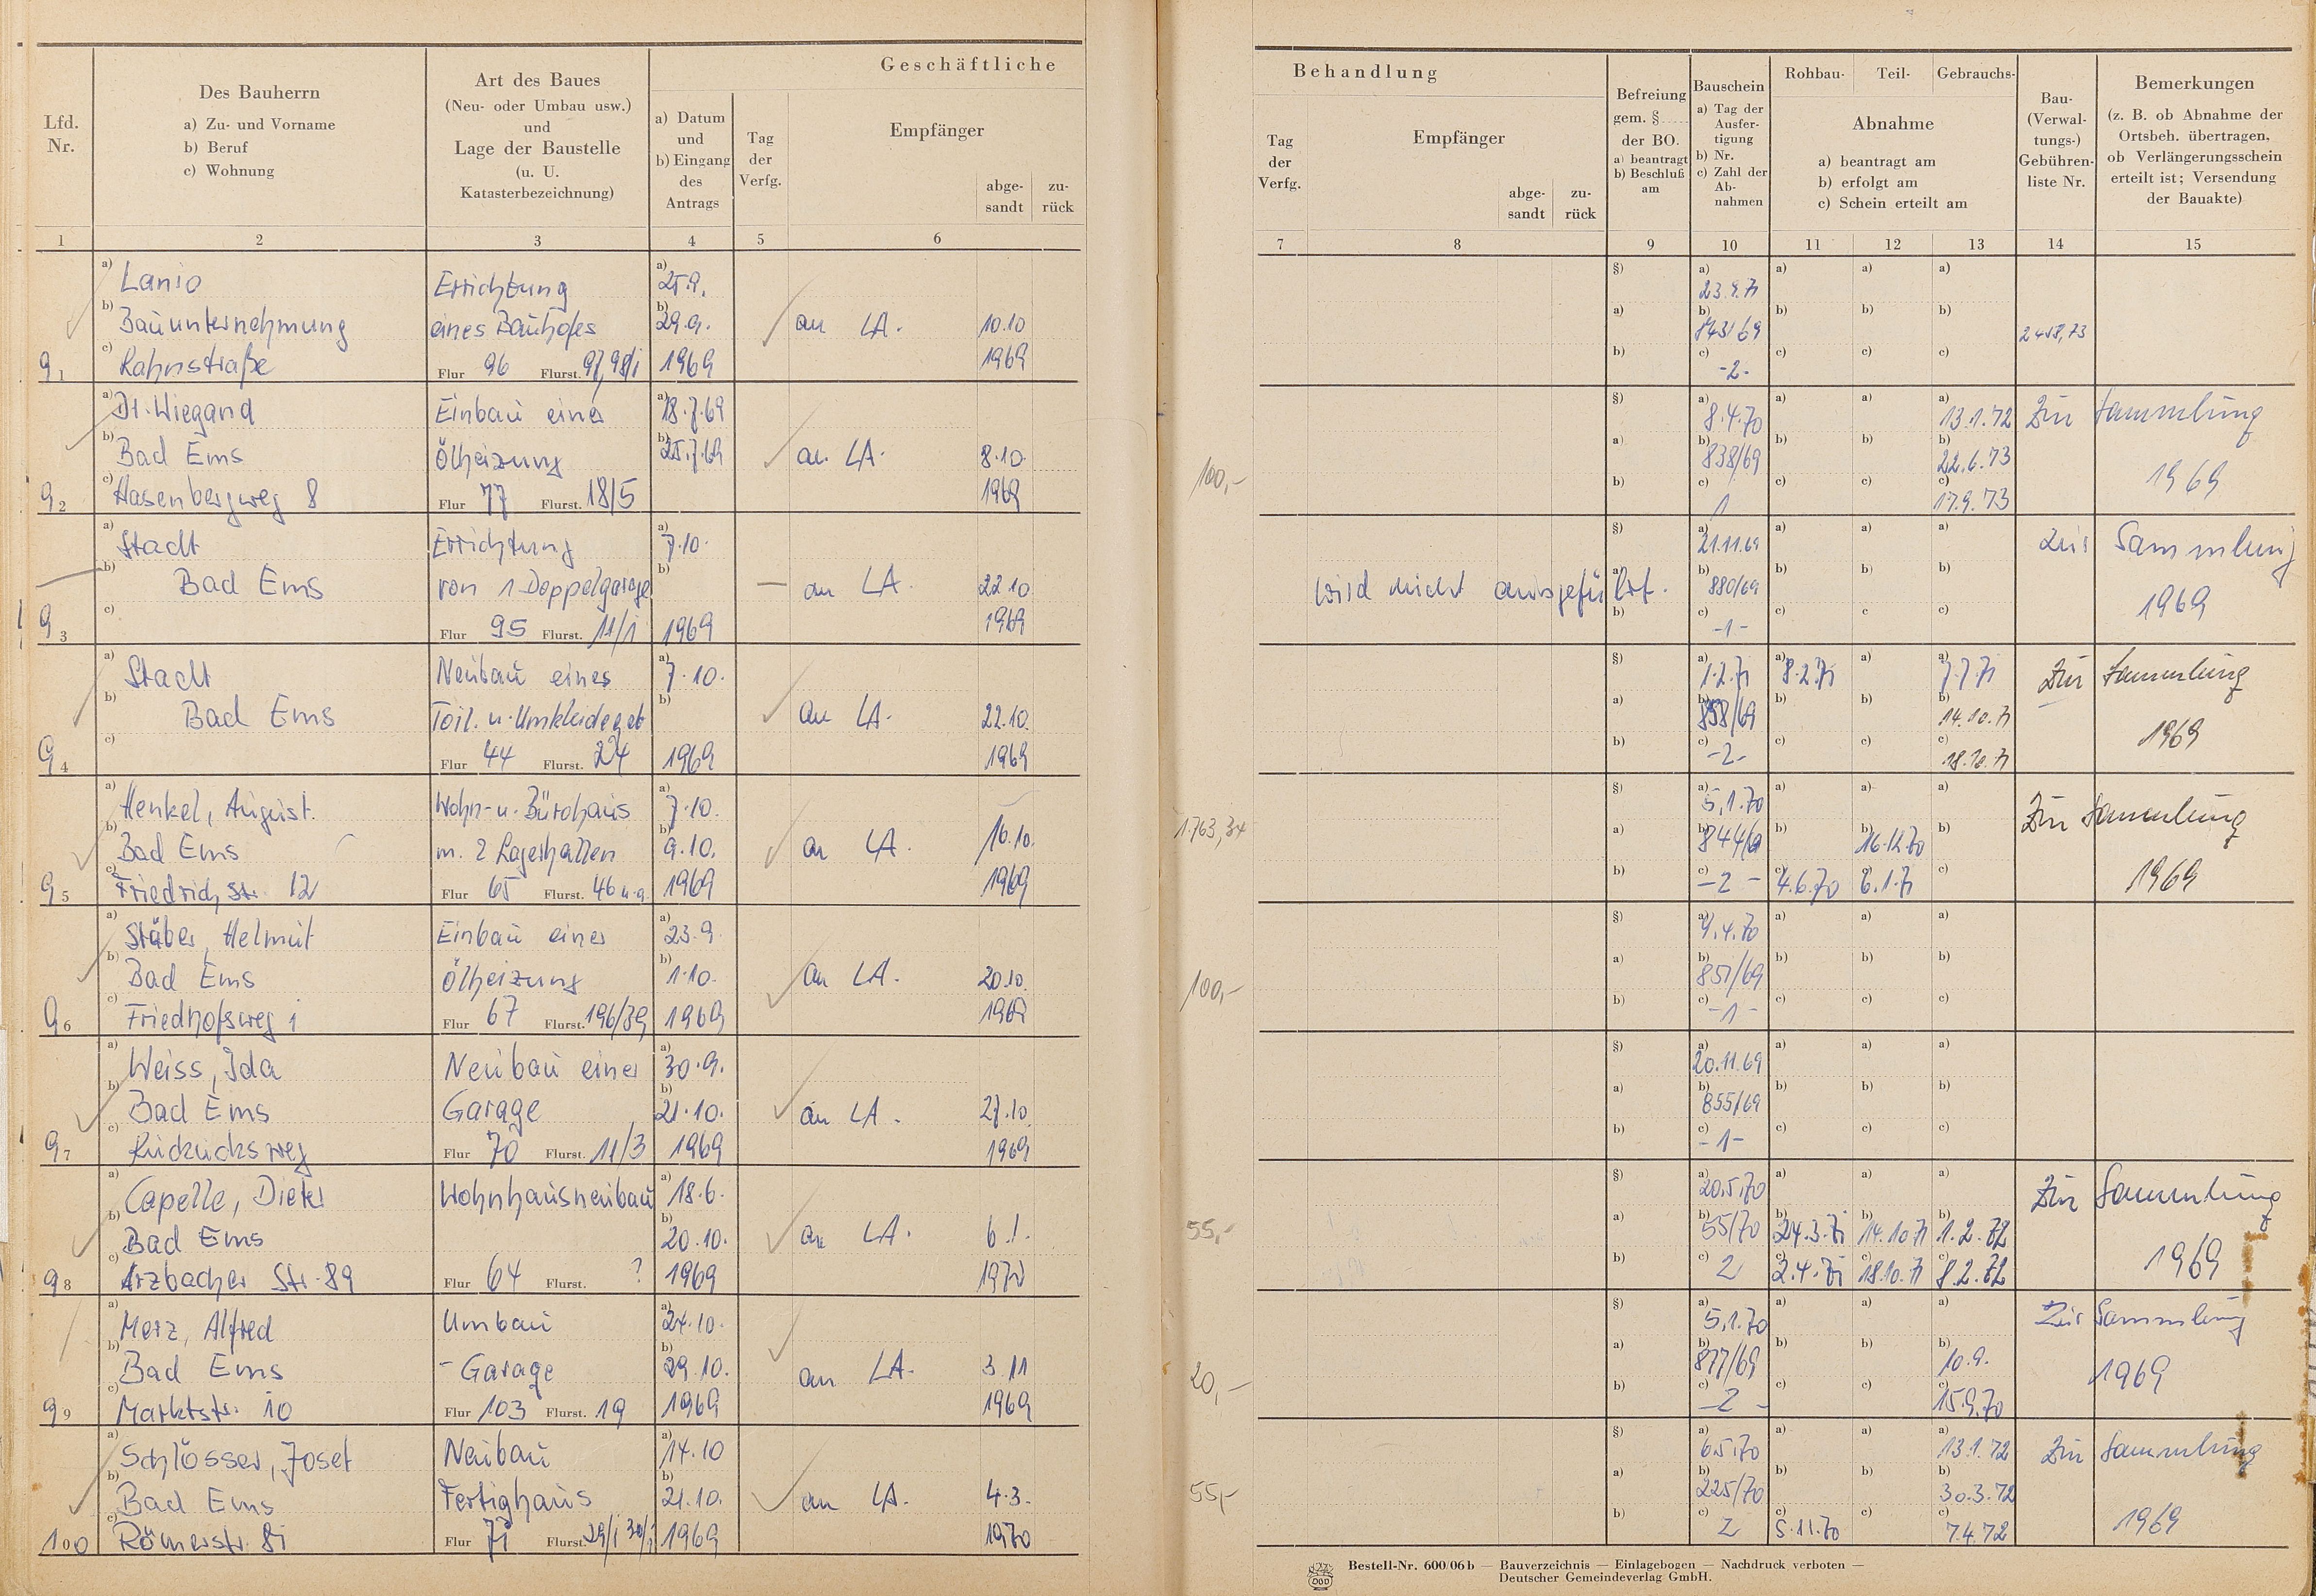 Geschäftliche
Lfd. Nr.
Des Bauherrn
a) Zu- und Vorname
b) Beruf
c) Wohnung
Art des Baues
(Neu- oder Umbau usw.)
und
Lage der Baustelle
(u. U.
Katasterbezeichnung)
a) Datum
und
b) Eingang
des
Antrags
Tag
der
Verfg.
Empfänger
abge-
sandt
zu-
rück
1 2 3 4 5 6
a) Lanio Errichtung a) 25.9.
b) Bauunternehmung eines Bauhofes b) 29.9. an LA. 10.10
91 c) Flur 96 Flurst. 1969 1969
a) Dr. Wiegand Einbau einer a) 18.7.69
b) Bad Ems Ölheizung b) 25.7.69 an LA. 8.10.
92 c) Hasenbergweg 8 Flur 77 Flurst. 18/5 1969
a) Stadt Errichtung a) 7.10.
b) Bad Ems von 1 Doppelgarage b) — an LA. 22.10
93 c) Flur 95 Flurst. 11/1 1969 1969
a) Stadt Neubau eines a) 7.10.
b) Bad Ems Toil. u. Umkleidegeb b) an LA. 22.10.
94 c) Flur 44 Flurst. 24 1969 1969
a) Henkel, August. Wohn- u. Bürohaus a) 7.10.
b) Bad Ems m. 2 Lagerhallen b) 9.10. an LA. 16.10.
95 c) Friedrichstr. 12 Flur 65 Flurst. 46 u.a. 1969 1969
a) Stäber, Helmut Einbau einer a) 23.9.
b) Bad Ems Ölheizung b) 1.10. an LA. 20.10.
96 c) Friedhofsweg 1 Flur 67 Flurst. 196/39 1969 1969
a) Weiss, Ida Neubau einer a) 30.9.
b) Bad Ems Garage b) 21.10. an LA. 27.10
97 c) Kuckucksweg Flur 70 Flurst. 11/3 1969 1969
a) Capelle, Dieter Wohnhausneubau a) 18.6.
b) Bad Ems b) 20.10. an LA. 6.1.
98 c) Arzbacher Str. 89 Flur 64 Flurst. ? 1969 1970
a) Merz, Alfred Umbau a) 24.10.
b) Bad Ems - Garage b) 29.10. an LA. 3.11
99 c) Marktstr. 10 Flur 103 Flurst. 19 1969 1969
a) Schlösser, Josef Neubau a) 14.10
b) Bad Ems Fertighaus b) 21.10. an LA. 4.3.
100 c) Römerstr. 81 Flur 71 Flurst. 1969 1970
Behandlung
Tag
der
Verfg.
Empfänger
abge-
sandt
zu-
rück
Befreiung
gem. §
der BO.
a) beantragt
b) Beschluß
am
Bauschein
a) Tag der
Ausfer-
tigung
b) Nr.
c) Zahl der
Ab-
nahmen
Rohbau- Teil- Gebrauchs-
Abnahme
a) beantragt am
b) erfolgt am
c) Schein erteilt am
Bau-
(Verwal-
tungs-)
Gebühren-
liste Nr.
Bemerkungen
(z. B. ob Abnahme der
Ortsbeh. übertragen,
ob Verlängerungsschein
erteilt ist; Versendung
der Bauakte)
7 8 9 10 11 12 13 14 15
§) a) 23.4.71 a) a) a)
a) b) 843/69 b) b) b)
b) c) -2- c) c) c)
§) a) 8.4.70 a) a) a) 13.1.72 Zur Sammlung
100,- a) b) 838/69 b) b) b) 22.6.73 1969
b) c) 1 c) c) c) 17.9.73
§) a) 21.11.69 a) a) a) Zur Sammlung
wird nicht ausgeführt. a) b) 880/69 b) b) b) 1969
b) c) -1- c) c c)
§) a) 1.2.71 a) 8.2.71 a) a) 7.7.71 Zur Sammlung
a) b) 858/69 b) b) b) 14.10.71 1969
b) c) -2- c) c) c) 18.10.71
§) a) 5.1.70 a) a) a) Zur Sammlung
1.763,34 a) b) 844/69 b) b) 16.12.70 b)
b) c) -2- c) 4.6.70 c) 6.1.71 c) 1969
§) a) 9.4.70 a) a) a)
a) b) 851/69 b) b) b)
100,- b) c) -1- c) c) c)
§) a) 20.11.69 a) a) a)
a) b) 855/69 b) b) b)
b) c) -1- c) c) c)
§) a) 20.5.70 a) a) a) Zur Sammlung
55,- a) b) 55/70 b) 24.3.71 b) 14.10.71 b) 1.2.72
b) c) 2 c) 2.4.71 c) 18.10.71 c) 8.2.72 1969
§) a) 5.1.70 a) a) a) Zur Sammlung
20,- a) b) 877/69 b) b) b) 10.9. 1969
b) c) -2- c) c) c) 15.9.70
§) a) 6.5.70 a) a) a) 13.1.72 Zur Sammlung
55,- a) b) 225/70 b) b) b) 30.3.72
b) c) 2 c) 5.11.70 c) c) 7.4.72 1969
Bestell-Nr. 600/06 b — Bauverzeichnis — Einlagebogen — Nachdruck verboten —
Deutscher Gemeindeverlag GmbH.